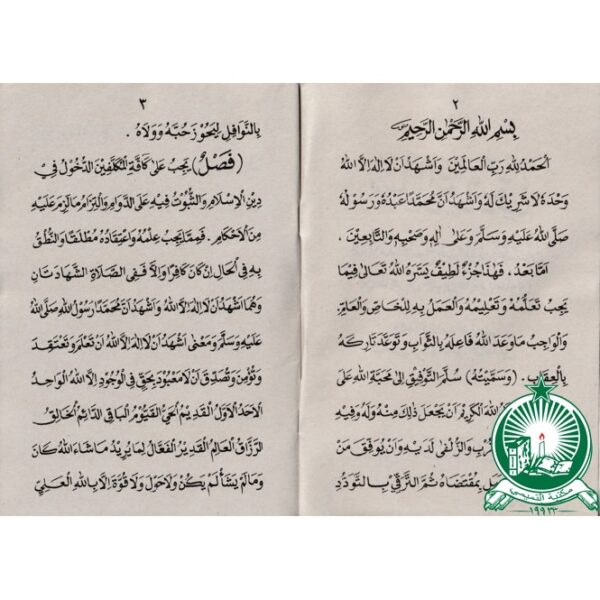 ٢
بِسْمِ اللهِ الرَّحْمٰنِ الرَّحِيْمِ
اَلحَمْدُ لِلّٰهِ رَبِّ الْعَالَمِيْنَ وَاَشْهَدُ اَنْ لَا اِلٰهَ اِلَّا اللهُ
وَحْدَهُ لَا شَرِيْكَ لَهُ وَاَشْهَدُ اَنَّ مُحَمَّدًا عَبْدُهُ وَرَسُوْلُهُ
صَلَّى اللهُ عَلَيْهِ وَسَلَّمَ وَعَلَى اٰلِهِ وَصَحْبِهِ وَالتَّابِعِيْنَ .
اَمَّا بَعْدُ ، فَهٰذَا جُزْءٌ لَطِيْفٌ يَسَّرَهُ اللهُ تَعَالٰى فِيْمَا
يَجِبُ تَعَلُّمُهُ وَتَعْلِيْمُهُ وَالْعَمَلُ بِهِ لِلْخَاصِّ وَالْعَامِّ
وَالْوَاجِبُ مَا وَعَدَ اللهُ فَاعِلَهُ بِالثَّوَابِ وَتَوَعَّدَ تَارِكَهُ
بِالْعِقَابِ . (وَسَمَّيْتُهُ) سُلَّمَ التَّوْفِيْقِ اِلٰى مَحَبَّةِ اللهِ عَلَى
اللهَ الْكَرِيْمَ اَنْ يَجْعَلَ ذٰلِكَ مِنْهُ وَلَهُ وَفِيْهِ
وَالزُّلْفٰى لَدَيْهِ وَاَنْ يُوَفِّقَ مَنْ
بِمُقْتَضَاهُ ثُمَّ التَّرَقِّيْ بِالتَّوَدُّدِ
مكتبة
١٩٢٣
٣
بِالنَّوَافِلِ لِيَحُوْزَ حُبَّهُ وَوَلَاهُ .
(فَصْلٌ) يَجِبُ عَلٰى كَافَّةِ الْمُكَلَّفِيْنَ الدُّخُوْلُ فِيْ
دِيْنِ الْاِسْلَامِ وَالثُّبُوْتُ فِيْهِ عَلَى الدَّوَامِ وَالْتِزَامُ مَا لَزِمَ عَلَيْهِ
مِنَ الْاَحْكَامِ . فَمِمَّا يَجِبُ عِلْمُهُ وَاعْتِقَادُهُ مُطْلَقًا وَالنُّطْقُ
بِهِ فِي الْحَالِ اِنْ كَانَ كَافِرًا وَاِلَّا فَفِي الصَّلَاةِ الشَّهَادَتَانِ
وَهُمَا اَشْهَدُ اَنْ لَا اِلٰهَ اِلَّا اللهُ وَاَشْهَدُ اَنَّ مُحَمَّدًا رَسُوْلُ اللهِ صَلَّى اللهُ
عَلَيْهِ وَسَلَّمَ وَمَعْنٰى اَشْهَدُ اَنْ لَا اِلٰهَ اِلَّا اللهُ اَنْ تَعْلَمَ وَتَعْتَقِدَ
وَتُؤْمِنَ وَتُصَدِّقَ اَنْ لَا مَعْبُوْدَ بِحَقٍّ فِي الْوُجُوْدِ اِلَّا اللهُ الْوَاحِدُ
الْاَحَدُ الْاَوَّلُ الْقَدِيْمُ الْحَيُّ الْقَيُّوْمُ الْبَاقِي الدَّائِمُ الْخَالِقُ
الرَّزَّاقُ الْعَالِمُ الْقَدِيْرُ الْفَعَّالُ لِمَا يُرِيْدُ مَا شَاءَ اللهُ كَانَ
وَمَا لَمْ يَشَأْ لَمْ يَكُنْ وَلَا حَوْلَ وَلَا قُوَّةَ اِلَّا بِاللهِ الْعَلِيِّ